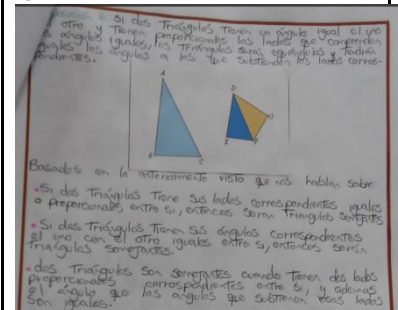 6 Si dos Triángulos Tienen un ángulo igual el uno
otro y Tienen proporcionales los lados que comprenden
ángulos iguales, los Triángulos seran equiángulos y Tendran
iguales los ángulos a los que subtienden los lados corres-
pondientes.
A
B
C
D
E
Basados en lo anteriormente visto que nos hablan sobre
• Si dos Triángulos Tiene sus lados correspondientes iguales
o proporcionales entre si, entonces seran Triangulos semejantes
• Si dos Triángulos Tienen sus ángulos correspondientes
el uno con el otro iguales entre si, entonces serán
Triángulos semejantes.
• dos Triángulos son semejantes cuando Tienen dos lados
proporcionales correspondientes entre si, y ademas
el ángulo que los angulos que subtienen esos lados
son iguales.